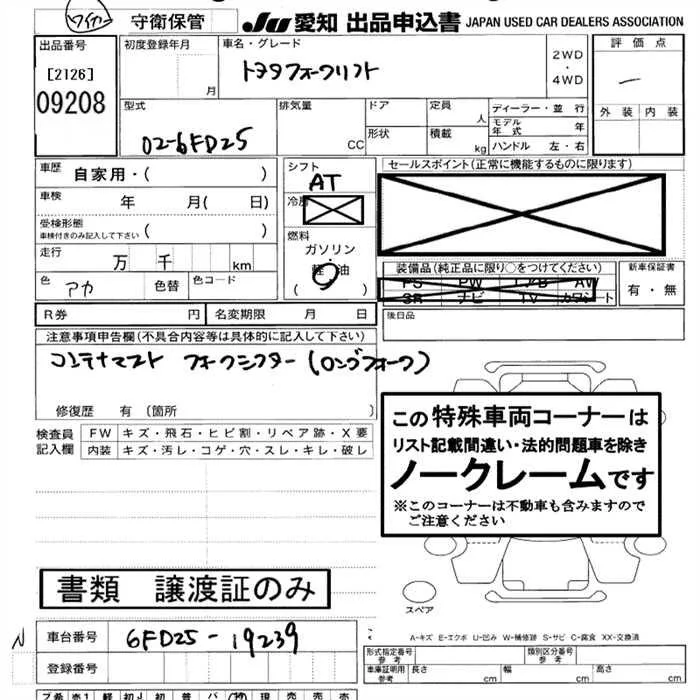 ワイカー 守衛保管 JU 愛知 出品申込書 JAPAN USED CAR DEALERS ASSOCIATION
出品番号
[2126]
09208
初度登録年月
月
車名・グレード
トヨタフォークリフト
2WD
・
4WD
評価点
—
外装 内装
型式
02-6FD25
排気量
CC
ドア
形状
定員
人
積載
kg
ディーラー・並行
モデル年式 年
ハンドル 左・右
車歴 自家用・( )
車検 年 月( 日)
受検形態
車検付きのみ記入して下さい ( )
走行 万 千 km
色 アカ 色替 色コード
シフト
AT
燃料
ガソリン
軽油
( )
セールスポイント(正常に機能するものに限ります)
装備品(純正品に限り○をつけてください)
PS PW エアB AW
SR ナビ TV カワシート
新車保証書
有・無
後日品
R券 円 名変期限 月 日
注意事項申告欄(不具合内容等は具体的に記入して下さい)
コンテナマスト フォークシフター(ロングフォーク)
修復歴 有 (箇所 )
検査員記入欄
FW キズ・飛石・ヒビ割・リペア跡・X要
内装 キズ・汚レ・コゲ・穴・スレ・キレ・破レ
この特殊車両コーナーは
リスト記載間違い・法的問題車を除き
ノークレームです
※このコーナーは不動車も含みますので
ご注意ください
スペア
書類 譲渡証のみ
N 車台番号 6FD25-19239
登録番号
A-キズ E-エクボ U-凹み W-補修跡 S-サビ C-腐食 XX-交換済
形式指定番号
参考
類別区分番号
参考
車庫証明用
参考
長さ cm 幅 cm 高さ cm